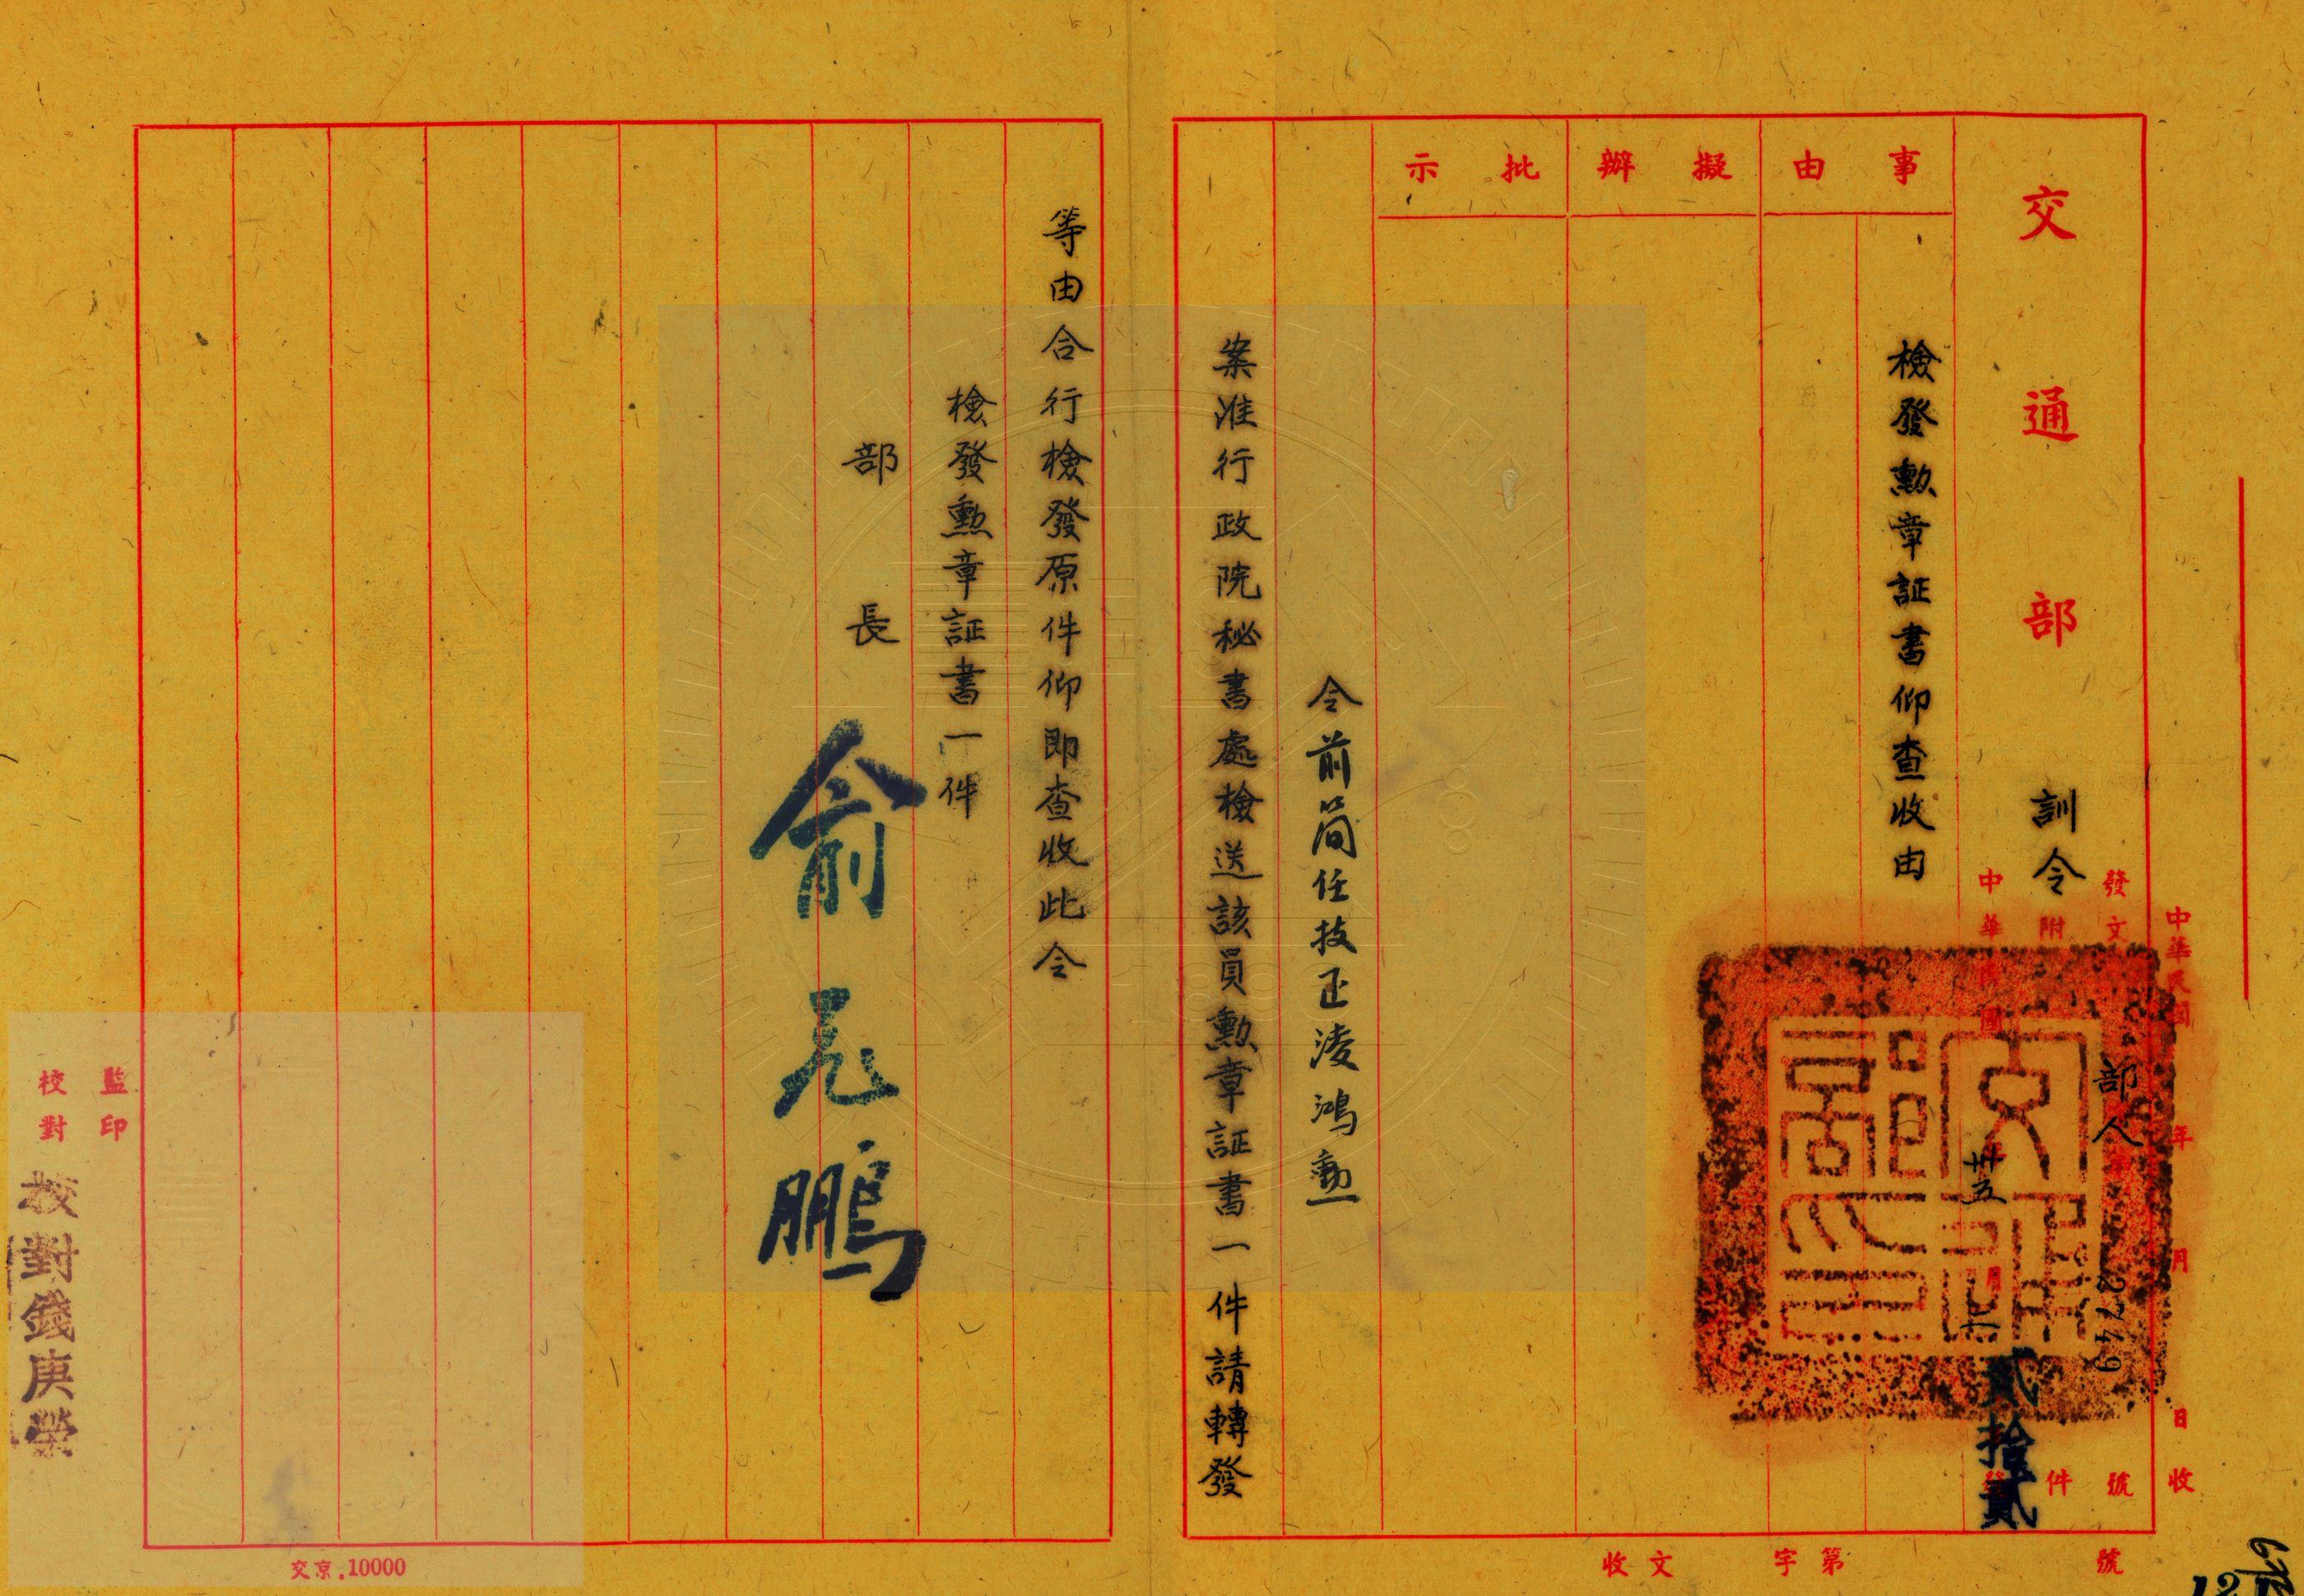 中華民國 年 月 日 收
發文 部人 2749 號
交通部 訓令
附 件
中華民國 卅五 月 貳拾貳
事由
檢發勲章証書仰查收由
擬辦
批示
令前简任技正淩鴻勛
案准行政院秘書處檢送該員勲章証書一件請轉發
等由合行檢發原件仰即查收此令
檢發勲章証書一件
部長 俞飛鵬
監印
校對 校對錢庚榮
收文 字第 號
交京.10000